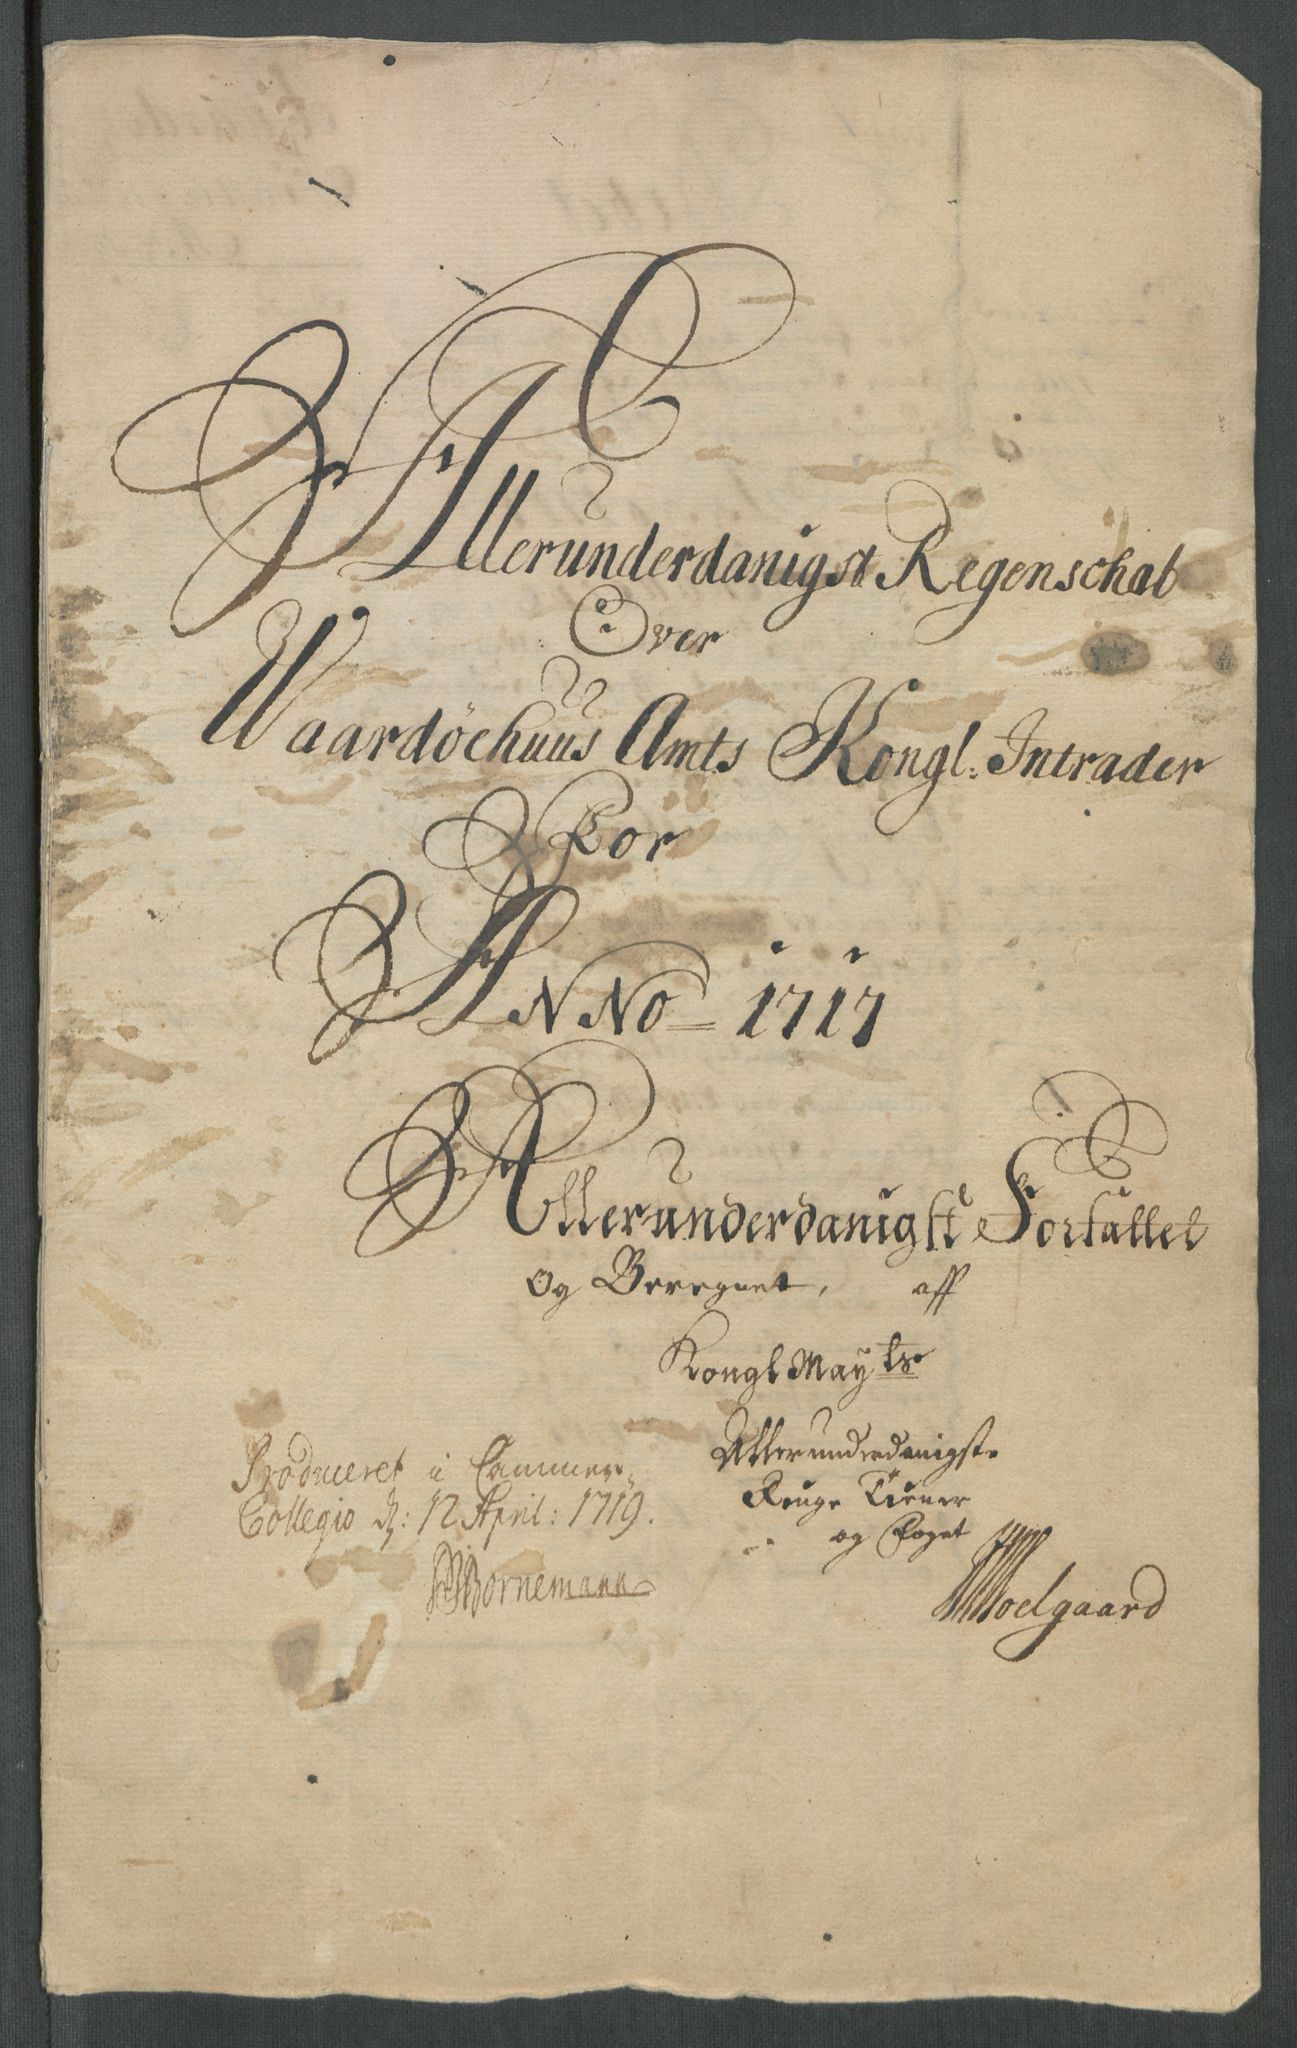 Allerunderdanigst Regenschab
Over
Waardöehuus Amts Kongl: Intrader
For
ANNO 1717
Allerunderdanigst Forfattet
Og Beregnet, aff
Kongl Mayts
Allerunderdanigste
Ringe Tiener
og Foget
Produceret i Cammer
Collegio d: 12 April: 1719.
Bornemann
Moelgaard